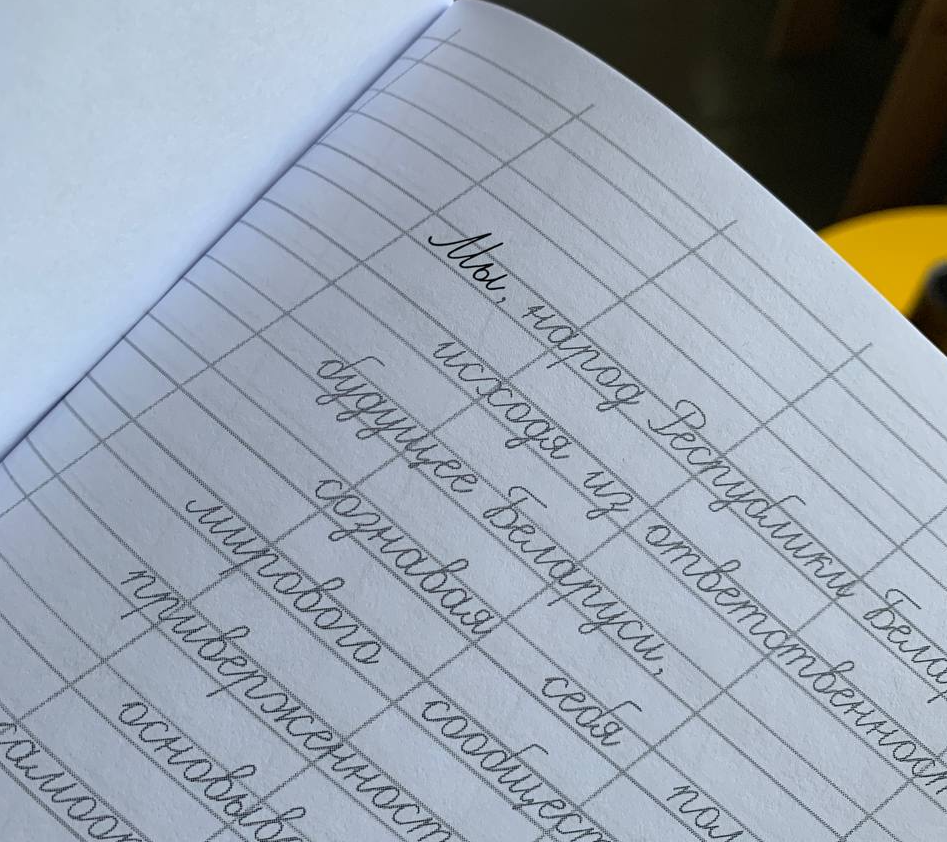 Мы, народ Республики Белар
исходя из ответственност
будущее Беларуси,
сознавая себя пол
мирового сообщест
приверженност
основыв
самооп